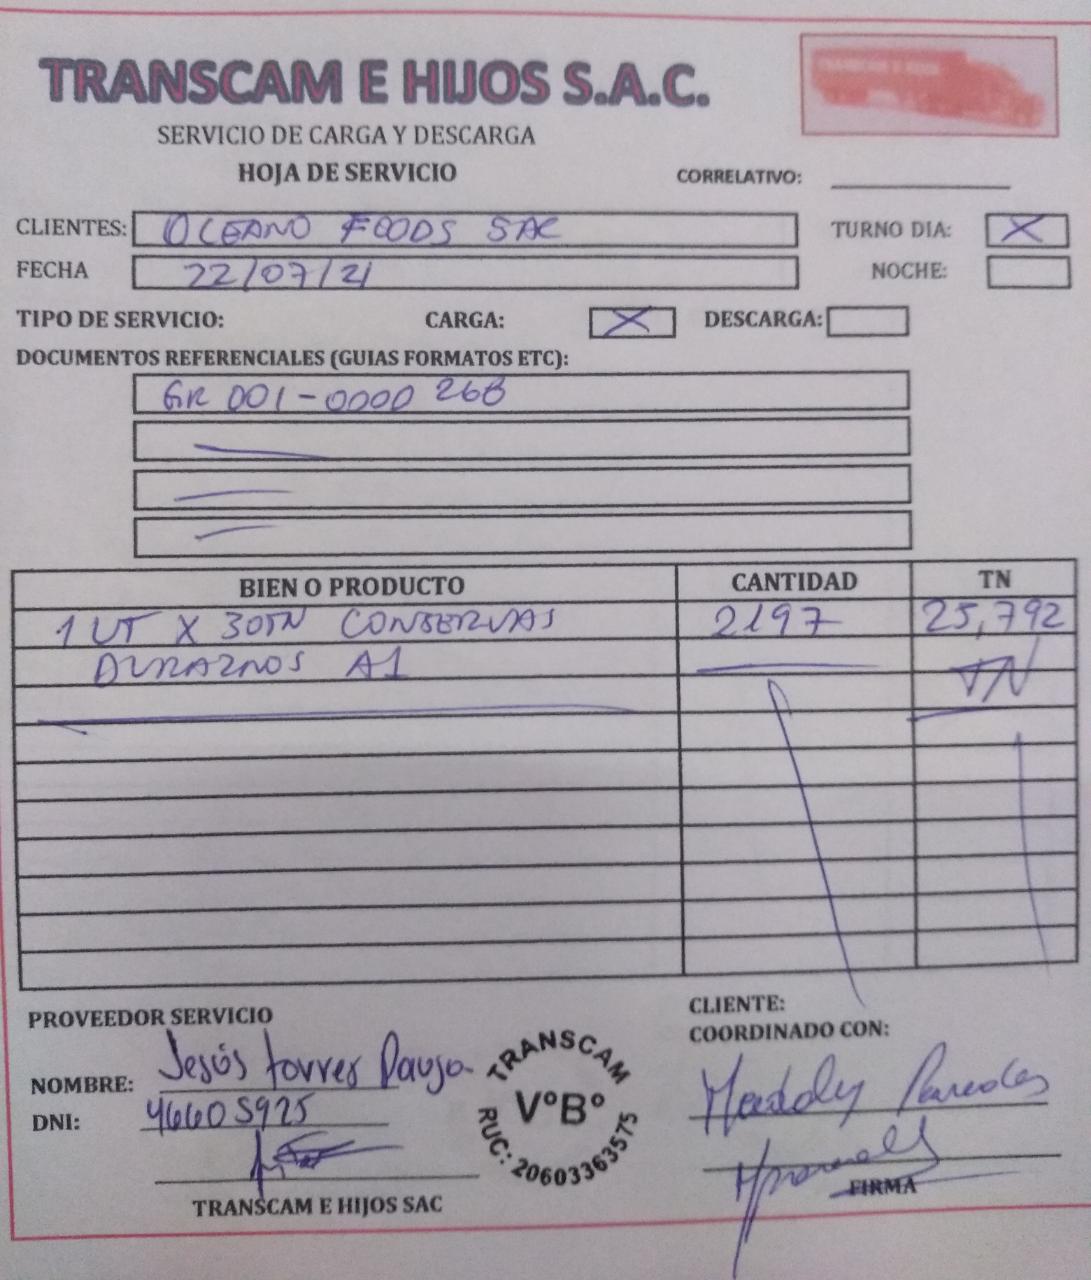 TRANSCAM E HIJOS S.A.C.
SERVICIO DE CARGA Y DESCARGA
HOJA DE SERVICIO
CORRELATIVO:
CLIENTES: OCEANO FOODS SAC
TURNO DIA: X
FECHA 22/07/21
NOCHE:
TIPO DE SERVICIO: CARGA: X DESCARGA:
DOCUMENTOS REFERENCIALES (GUIAS FORMATOS ETC):
GR 001-0000 268
BIEN O PRODUCTO CANTIDAD TN
1 UT X 30TN CONSERVAS 2197 25,792
DURAZNOS A1 TN
PROVEEDOR SERVICIO
CLIENTE:
COORDINADO CON:
NOMBRE: Jesús torres
DNI: 46605925
Paredes
TRANSCAM
V°B°
RUC: 20603363575
FIRMA
TRANSCAM E HIJOS SAC